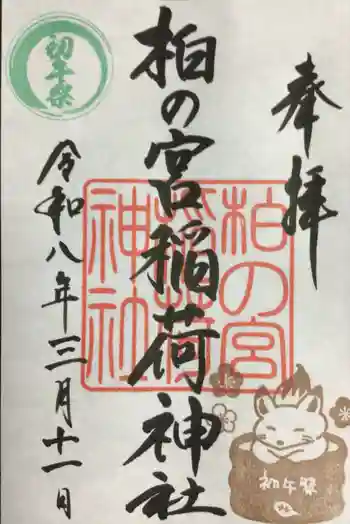 奉拝
柏の宮稲荷神社
柏の宮稲荷神社
令和八年三月十一日
初午祭
初午祭